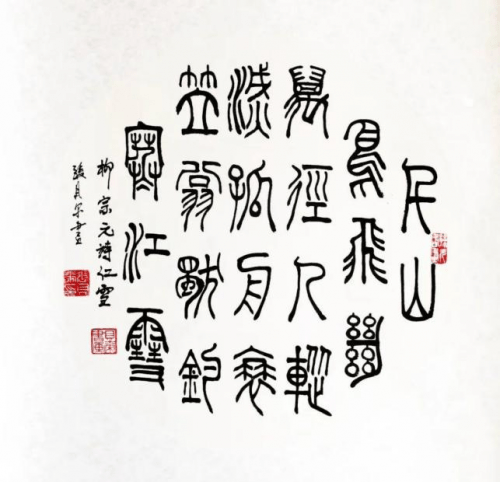 千山
鳥飛絕
萬徑人蹤
滅孤舟蓑
笠翁獨釣
寒江雪
柳宗元詩江雪
書